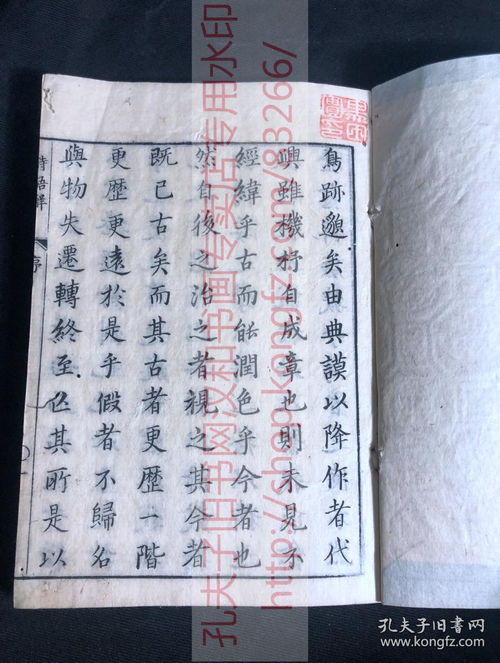 鳥跡邈矣由典謨以降作者代
興雖機杼自成章也則未見不
經緯乎古而能潤色乎今者也
然自後之治之者視之其今者
既已古矣而其古者更歷一階
更歷更遠於是乎假者不歸名
與物失遷轉終至亡其所是以
詩語解
序
孔夫子旧书网汉和书画专卖店专用水印
http://shop.kongfz.com/83266/
孔夫子旧书网
www.kongfz.com